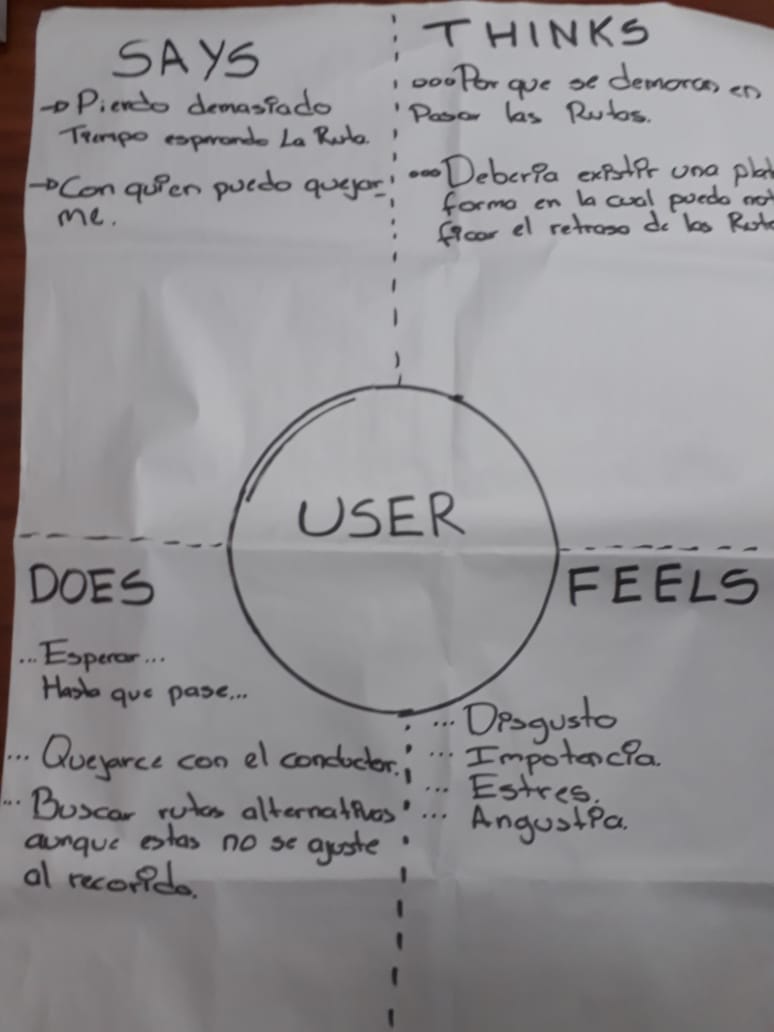 SAYS
→ Pierdo demasiado
Tiempo esperando La Ruta.
→ Con quien puedo quejar-
me.
THINKS
ooo Por que se demoran en
Pasar las Rutas.
ooo Deberia existir una plat
forma en la cual puedo not
ficar el retraso de las Ruta
USER
DOES
... Esperar...
Hasta que pase...
... Quejarce con el conductor.
... Buscar rutas alternativas
aunque estas no se ajuste
al recorido.
FEELS
... Disgusto
... Impotencia.
... Estres.
... Angustia.